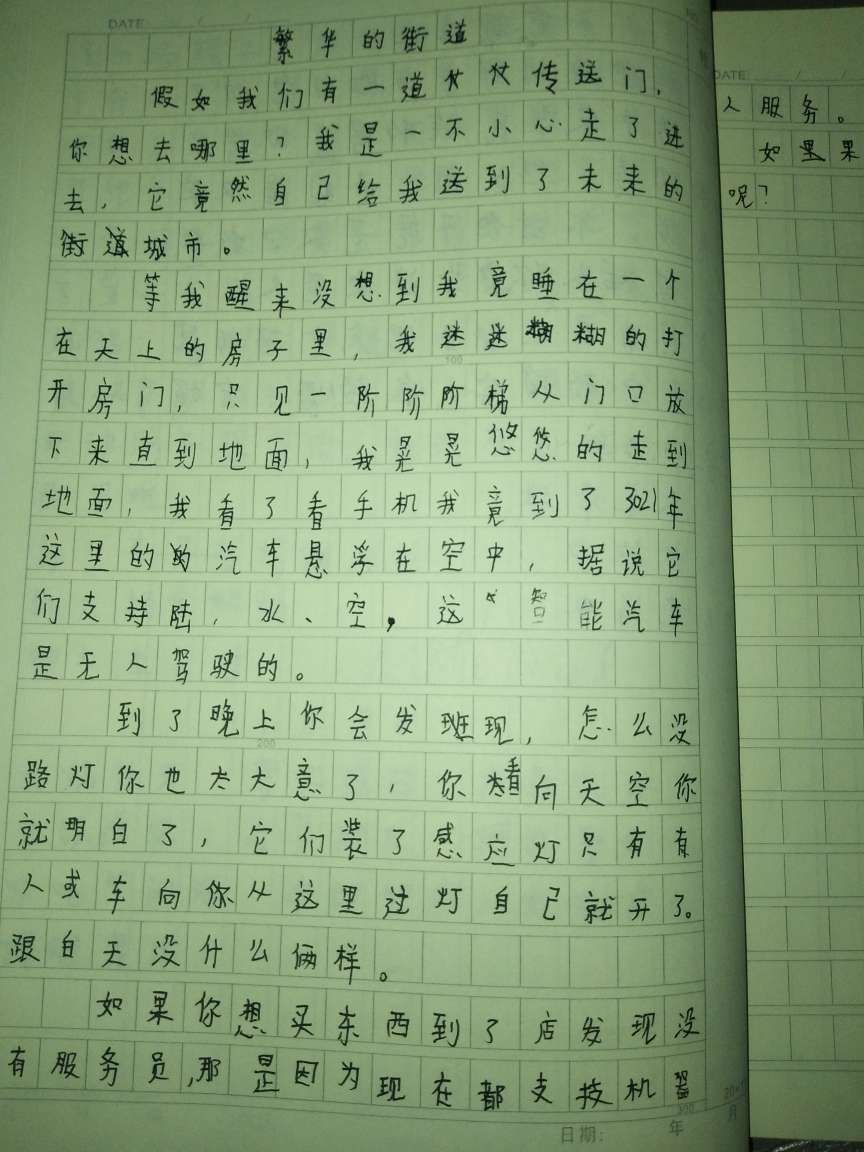 DATE / /
繁华的街道
假如我们有一道传送门，
你想去哪里？我是一不小心走了进
去，它竟然自己给我送到了未来的
街道城市。
等我醒来没想到我竟睡在一个
在天上的房子里，我迷迷糊糊的打
100
开房门，只见一阶阶阶梯从门口放
下来直到地面，我晃晃悠悠的走到
地面，我看了看手机我竟到了3021年
这里的汽车悬浮在空中，据说它
们支持陆，水、空，这智能汽车
是无人驾驶的。
到了晚上你会发现，怎么没
200
路灯你也太大意了，你看向天空你
就明白了，它们装了感应灯只有有
人或车向你从这里过灯自己就开了。
跟白天没什么俩样。
如果你想买东西到了店发现没
有服务员，那是因为现在都支技机器
300
日期： 年 月
DATE / /
人服务。
如果
呢？